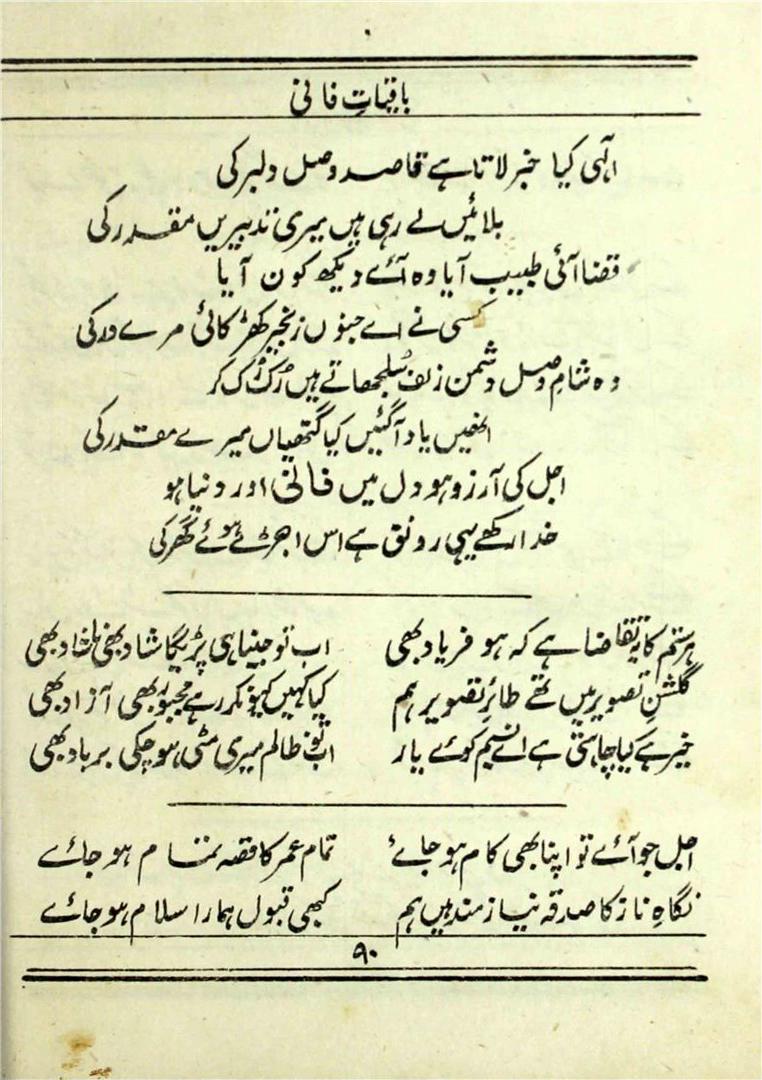 باقیاتِ فانی
الٰہی کیا خبر لاتا ہے قاصد وصل دلبر کی
بلائیں لے رہی ہیں میری تدبیریں مقدر کی
قضا آئی طبیب آیا وہ آئے دیکھ کون آیا
کسی نے اے جنوں زنجیر کھڑکائی مرے در کی
وہ شامِ وصل دشمن زلف سُلجھاتے ہیں رُک رُک کر
انھیں یاد آگئیں کیا گتھیاں میرے مقدر کی
اجل کی آرزو ہو دل میں فانی اور دنیا ہو
خدا رکھے یہی رونق ہے اس اجڑے ہوئے گھر کی
ہر ستم کا یہ تقاضا ہے کہ ہو فریاد بھی اب تو جینا ہی پڑیگا شاد بھی ناشاد بھی
گلشنِ تصویر میں تھے طائرِ تصویر ہم کیا کہیں کیونکر رہے مجبور بھی آزاد بھی
خیر ہے کیا چاہتی ہے اے نسیم کوئے یار اب تو ظالم میری مٹی ہو چکی برباد بھی
اجل جو آئے تو اپنا بھی کام ہو جائے تمام عمر کا قصہ تمام ہو جائے
نگاہِ ناز کا صدقہ نیازمند ہیں ہم کبھی قبول ہمارا سلام ہو جائے
۹۰